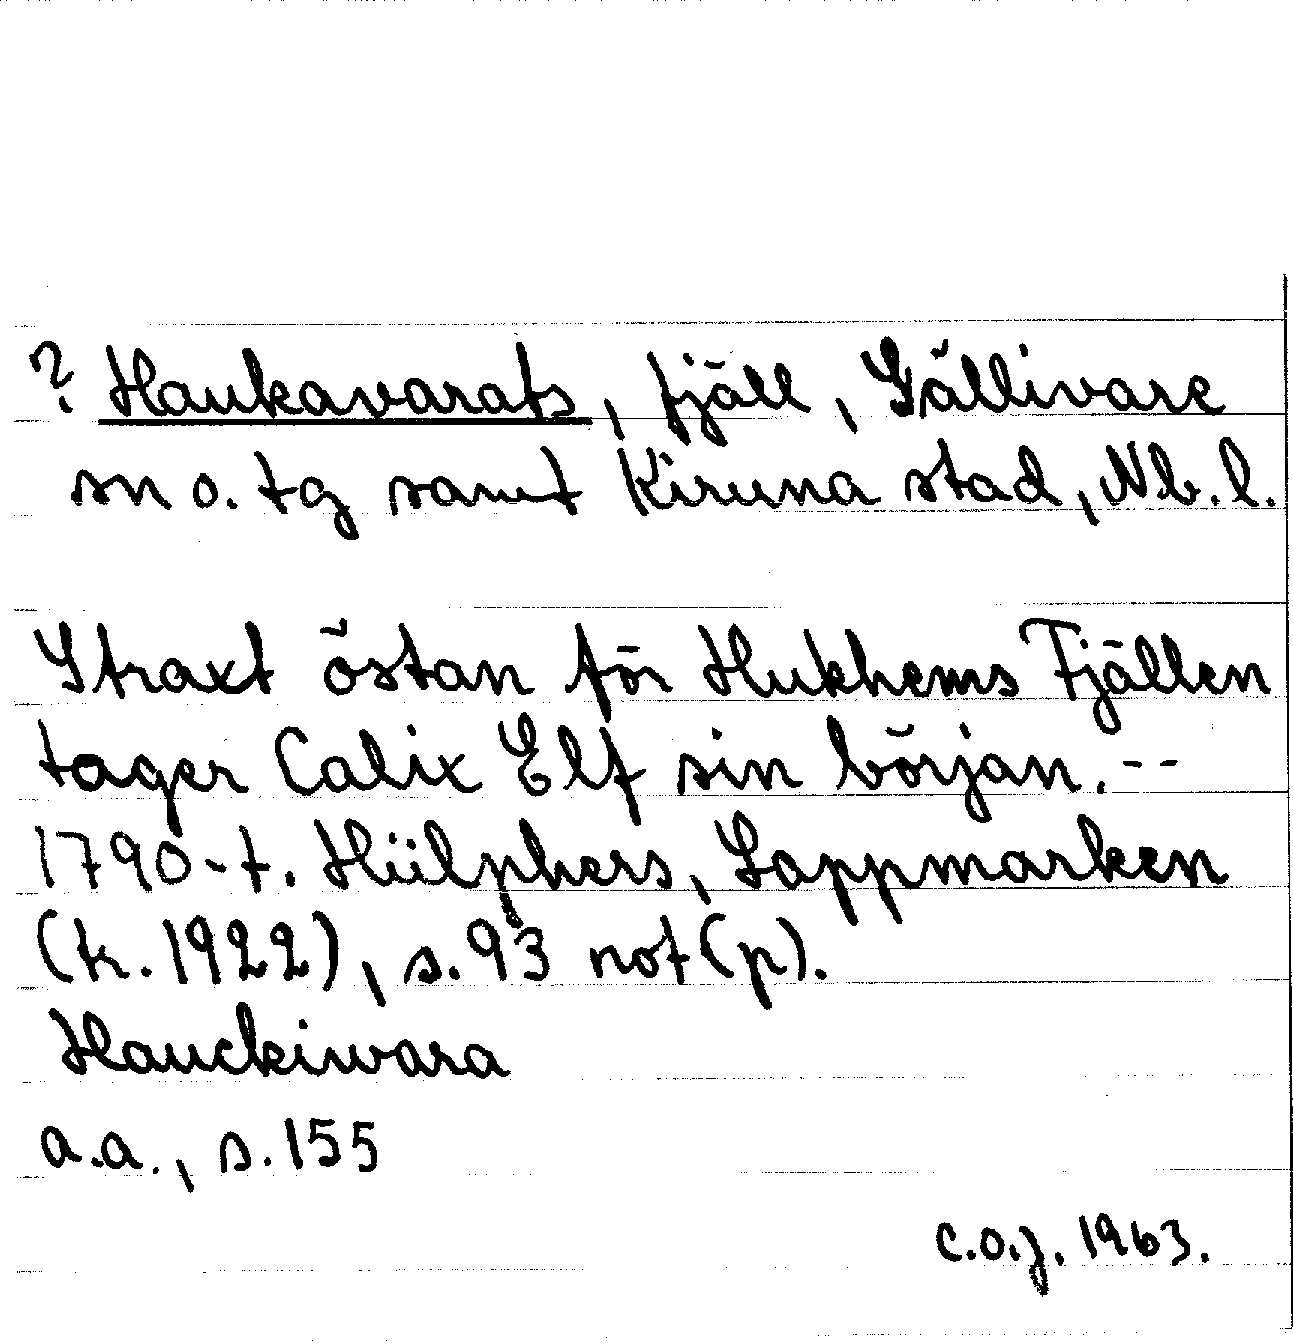 ? Haukavarats, fjäll, Gällivare
sn o. tg samt Kiruna stad, Nb. l.
Straxt östan för Hukhems Fjällen
tager Calix Elf sin början. --
1790-t. Hülphers, Lappmarken
(tr. 1922), s. 93 not (p).
Hauckiwara
a.a., s. 155
C.O.J. 1963.